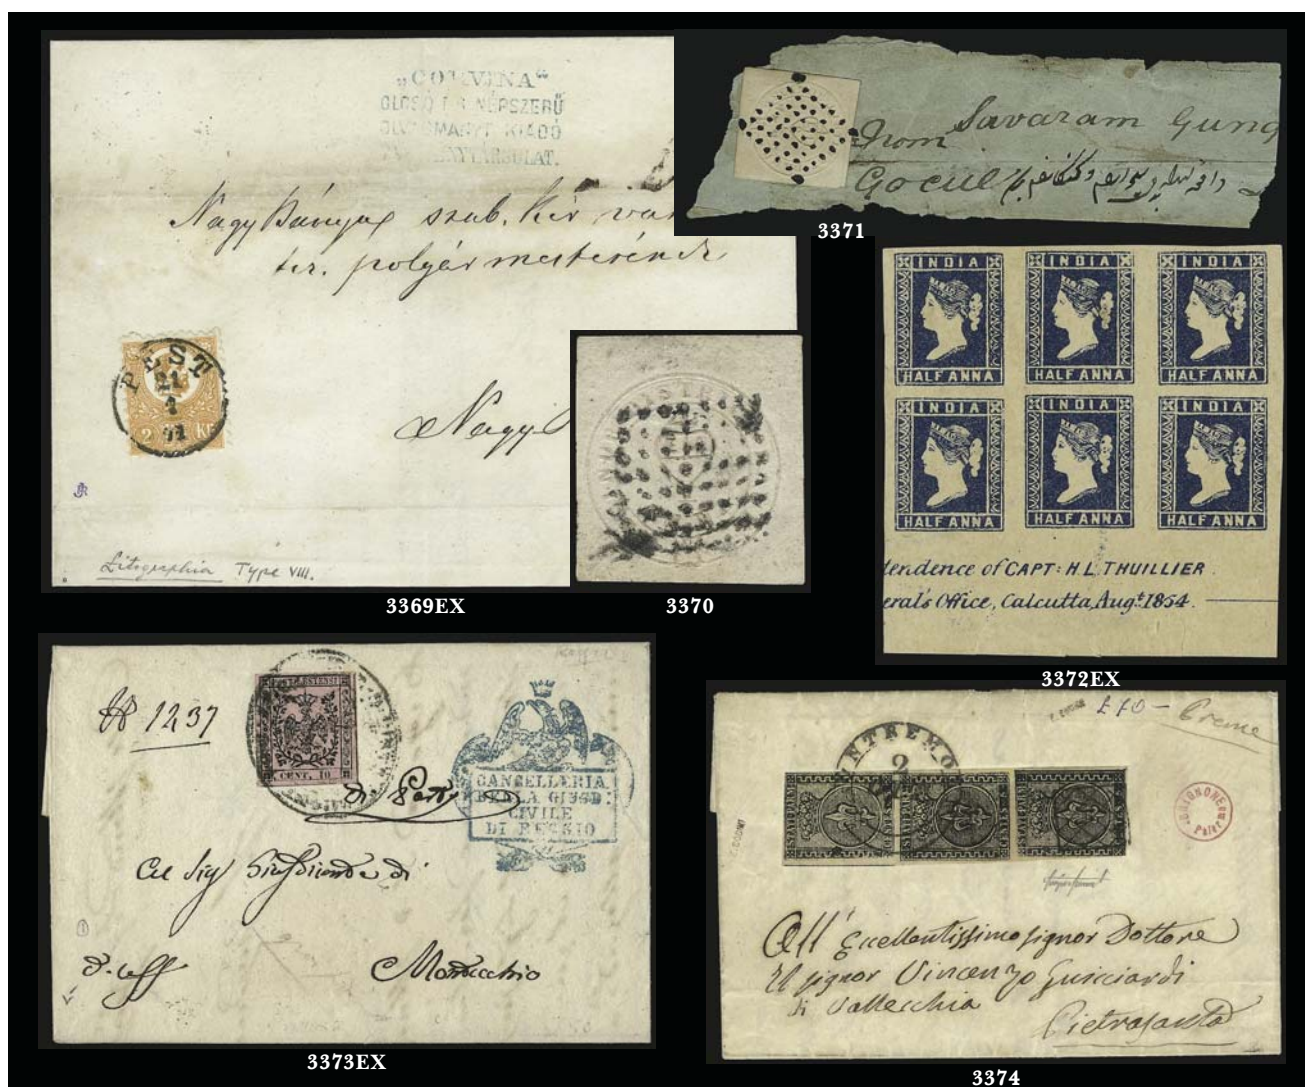 „CORVINA“
OLCSÓ ÉS NÉPSZERŰ
OLVASMÁNYT KIADÓ
Nagy Bánya szab. kir. va
polgármesterének
PEST
21
4
71
2 Kr
Nagy
Litographia Type VIII.
3369EX
From Savaram Gung
Gocul
3371
3370
INDIA INDIA INDIA
HALF ANNA HALF ANNA HALF ANNA
INDIA INDIA INDIA
HALF ANNA HALF ANNA HALF ANNA
tendence of CAPT: H. L. THUILLIER
eral's Office, Calcutta, Augt. 1854.
3372EX
No 1237
CENT. 10
CANCELLERIA
DELLA GIUSD:
CIVILE
DI REGGIO
Al Sig Giusdicente di
Montecchio
3373EX
£70 – Creme
NTREMO
2
Palermo
All' Eccellentissimo Signor Dottore
Il Signor Vincenzo Guicciardi
di Vallecchia
Pietrasanta
3374